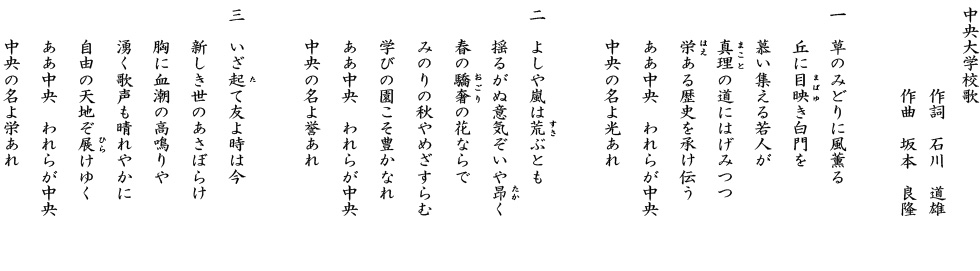 中央大学校歌
作詞　石川　道雄
作曲　坂本　良隆
一
草のみどりに風薫る
丘に目映き白門を
まばゆ
慕い集える若人が
真理の道にはげみつつ
まこと
栄ある歴史を承け伝う
はえ
ああ中央　われらが中央
中央の名よ光あれ
二
よしや嵐は荒ぶとも
すさ
揺るがぬ意気ぞいや昂く
たか
春の驕奢の花ならで
おごり
みのりの秋やめざすらむ
学びの園こそ豊かなれ
ああ中央　われらが中央
中央の名よ誉あれ
三
いざ起て友よ時は今
た
新しき世のあさぼらけ
胸に血潮の高鳴りや
湧く歌声も晴れやかに
自由の天地ぞ展けゆく
ひら
ああ中央　われらが中央
中央の名よ栄あれ